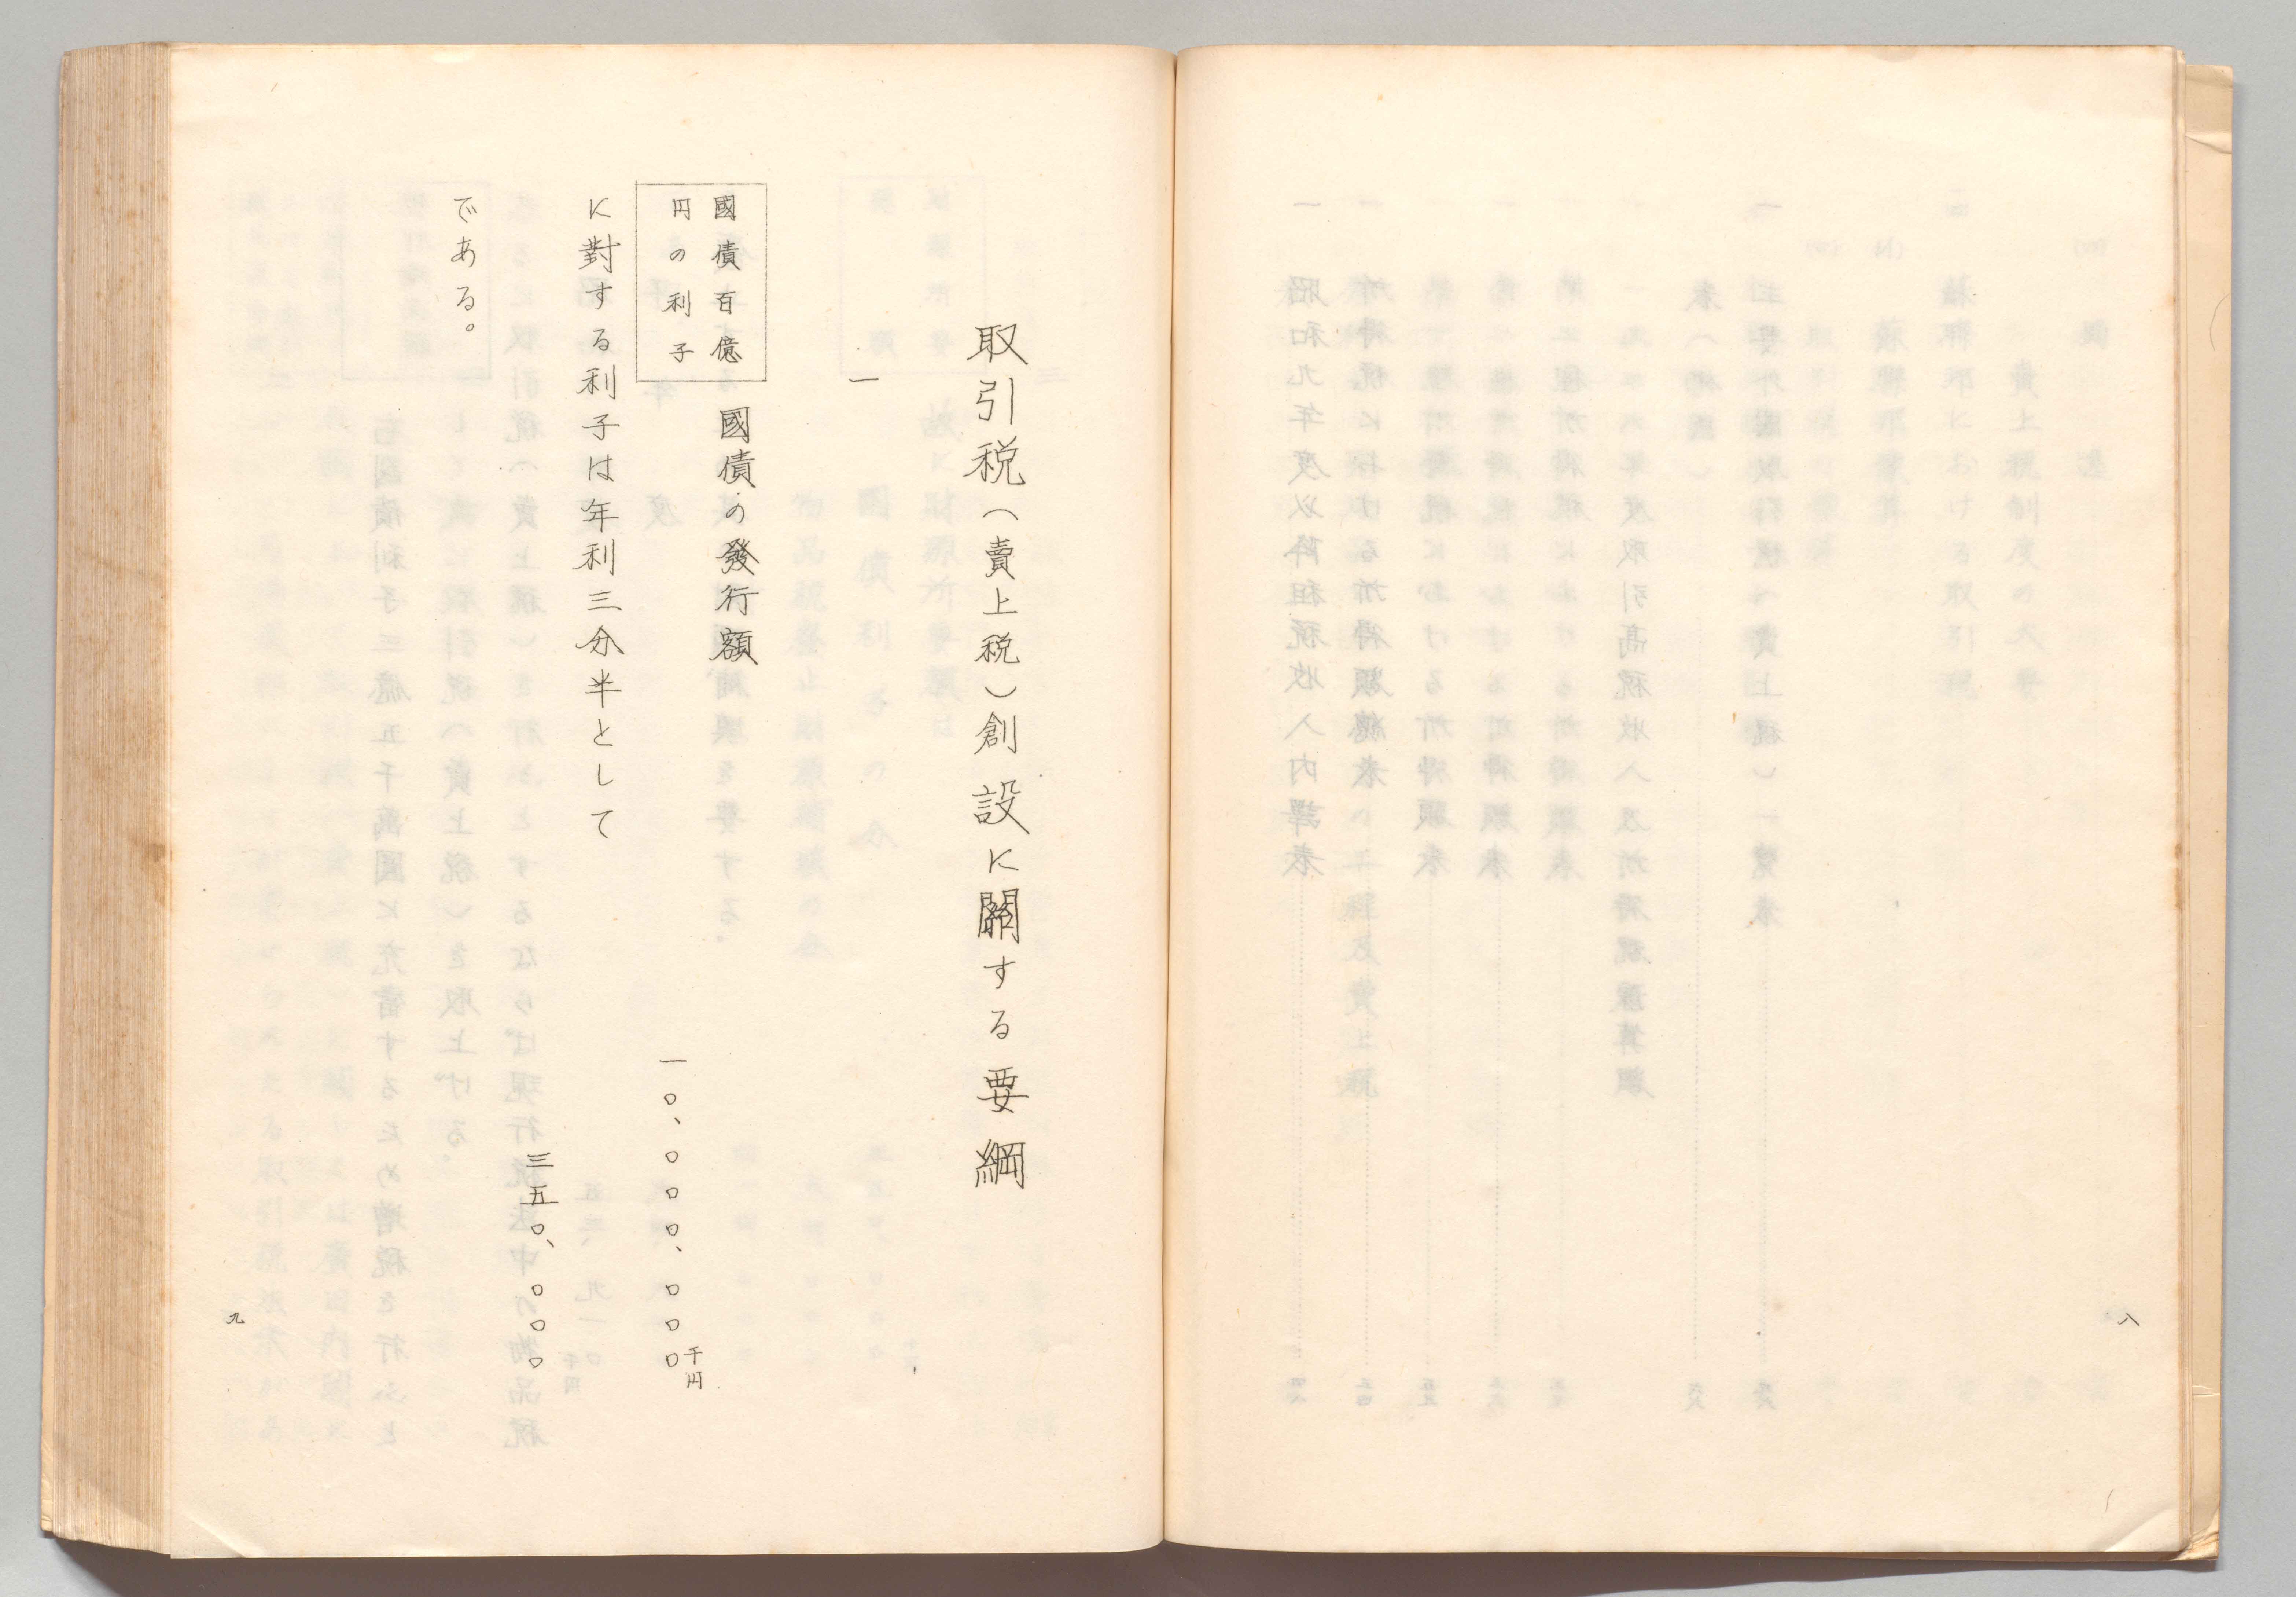 八
取引税（賣上税）創設に關する要綱
一
國債百億
円の利子
國債の發行額
一〇、〇〇〇、〇〇〇千円
に對する利子は年利三分半として
三五〇、〇〇〇
である。
九